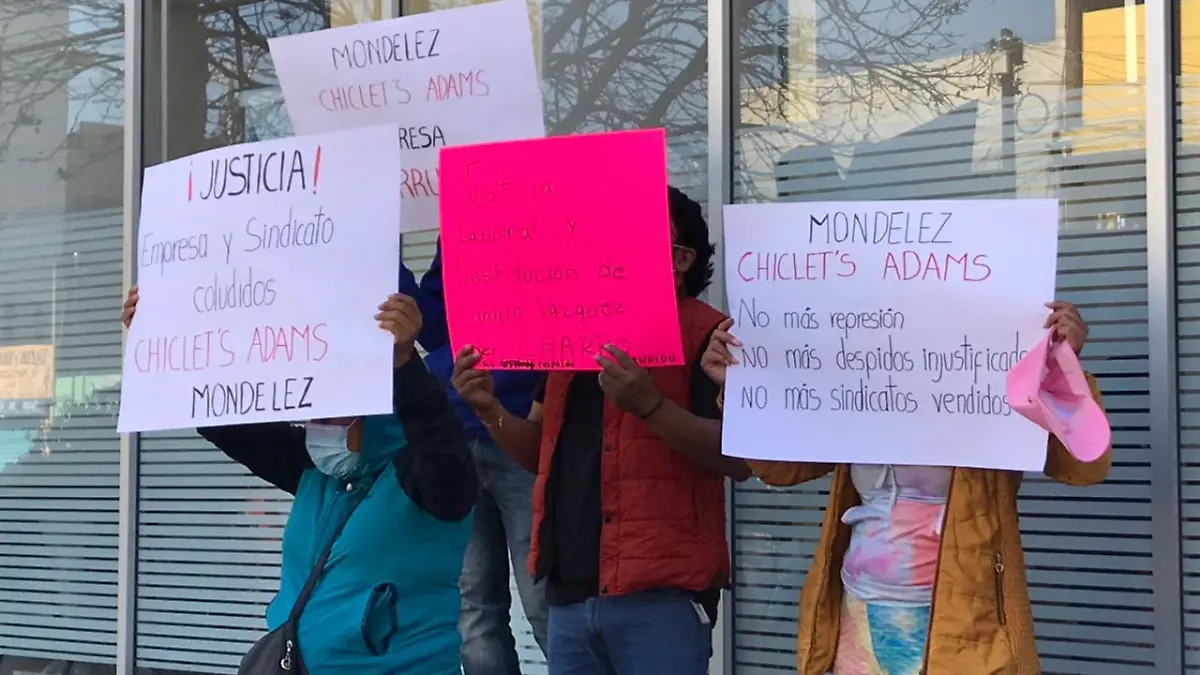 MONDELEZ
CHICLET'S ADAMS
¡JUSTICIA!
Empresa y Sindicato
coludidos
CHICLET'S ADAMS
MONDELEZ
Justicia
Laboral y
Destitución de
Vázquez
MONDELEZ
CHICLET'S ADAMS
No más represión
NO más despidos injustificado
NO más sindicatos vendidos